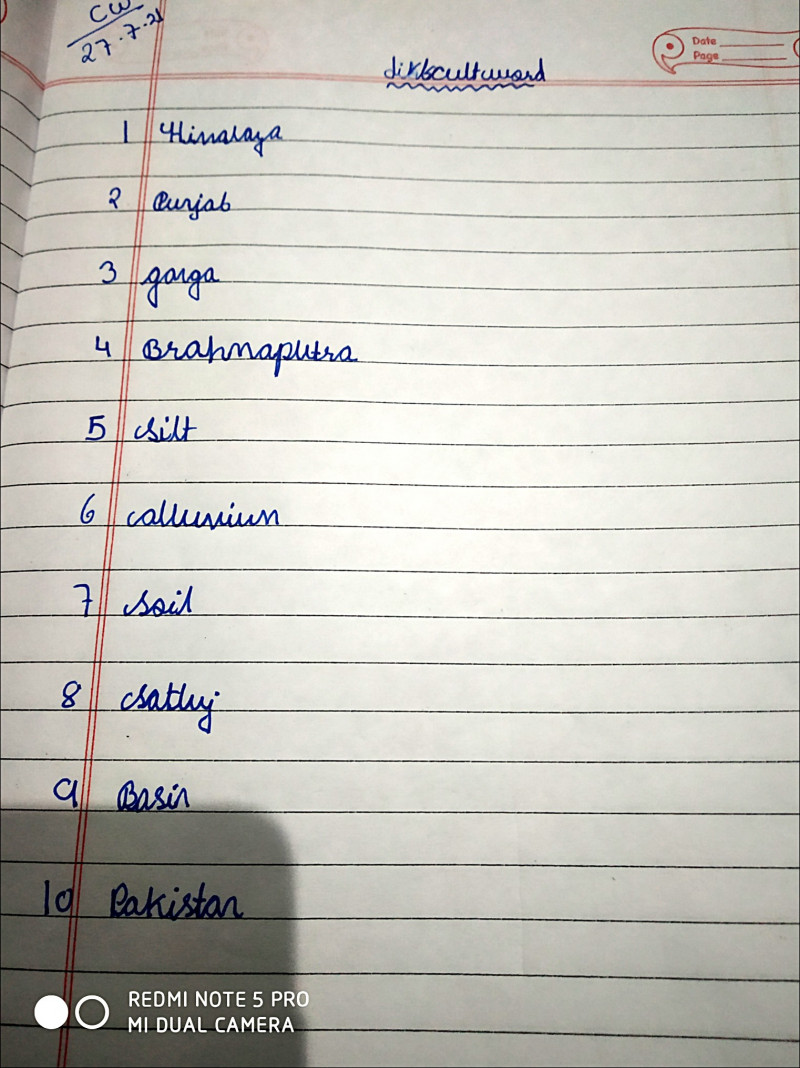 CW
27.7.21
Date
Page
dikkscultword
1 Himalaya
2 Punjab
3 ganga
4 Brahmaputra
5 silt
6 calluvium
7 soil
8 satluj
9 Basin
10 Pakistan
REDMI NOTE 5 PRO
MI DUAL CAMERA